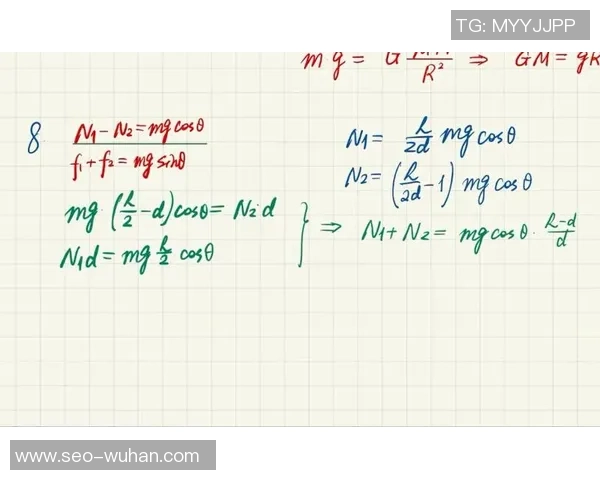 TG: MYYJJPP
mg = G Mm/R² ⇒ GM = gR
8. N₁ - N₂ = mg cosθ
f₁ + f₂ = mg sinθ
mg · (h/2 - d) cosθ = N₂ · d
N₁d = mg h/2 cosθ
N₁ = h/2d mg cosθ
N₂ = (h/2d - 1) mg cosθ
⇒ N₁ + N₂ = mg cosθ · h-d/d
www.seo-wuhan.com